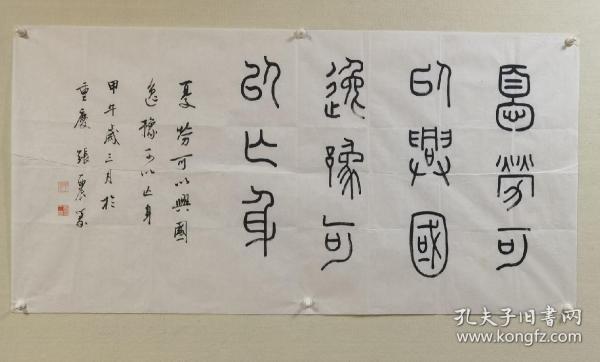 憂勞可
以興國
逸豫可
以亡身
憂勞可以興國
逸豫可以亡身
甲午歲三月於
重慶 張農
孔夫子旧书网
www.kongfz.com